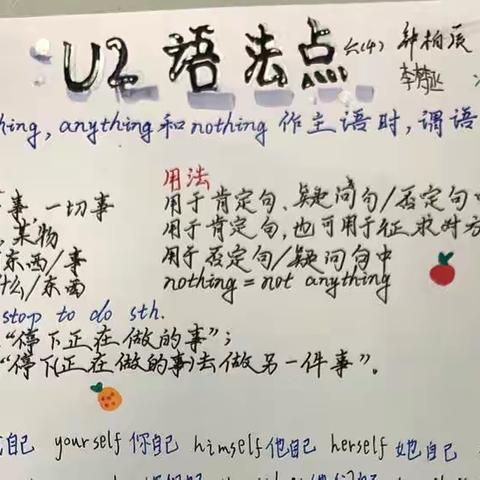 U2 语法点 六(4) 钟柏溪
李梦丞
hing, anything和nothing 作主语时,谓语
用法
事,一切事 用于肯定句、疑问句/否定句中
,某物 用于肯定句,也可用于征求对方
东西/事 用于否定句/疑问句中
什么/东西 nothing = not anything
stop to do sth.
"停下正在做的事";
"停下(正在做的事)去做另一件事"。
自己 yourself 你自己 himself他自己 herself 她自己